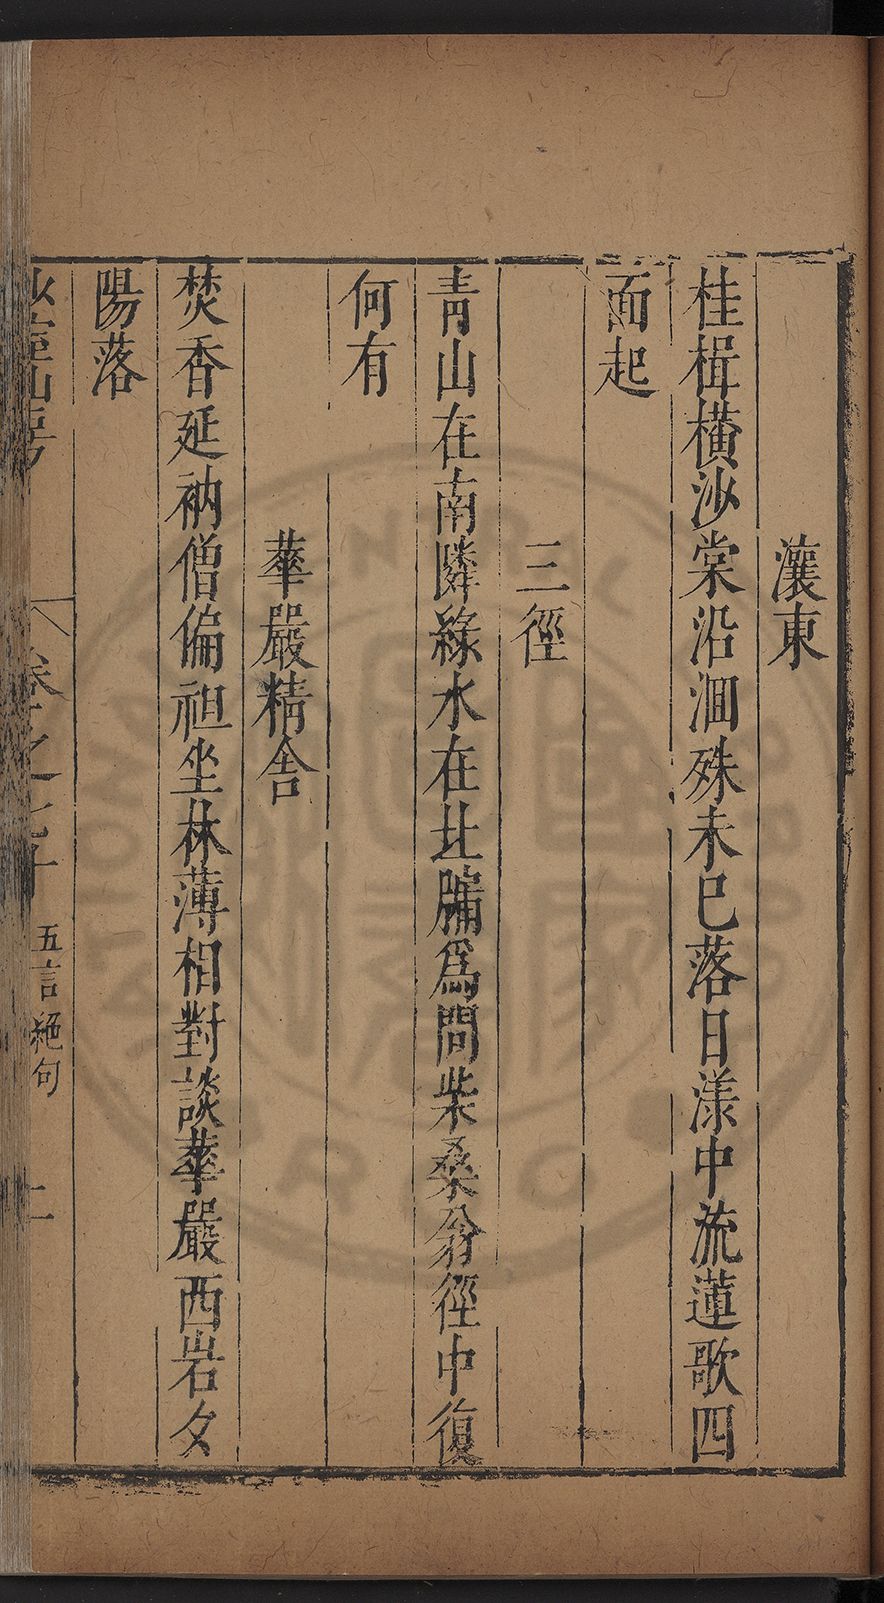 瀼東
桂楫橫沙棠沿洄殊未巳落日漾中流蓮歌四
面起
三徑
青山在南隣綠水在北牖爲問柴桑翁徑中復
何有
華嚴精舍
焚香延衲僧偏袒坐林薄相對談華嚴西岩夕
陽落
五言絕句
二